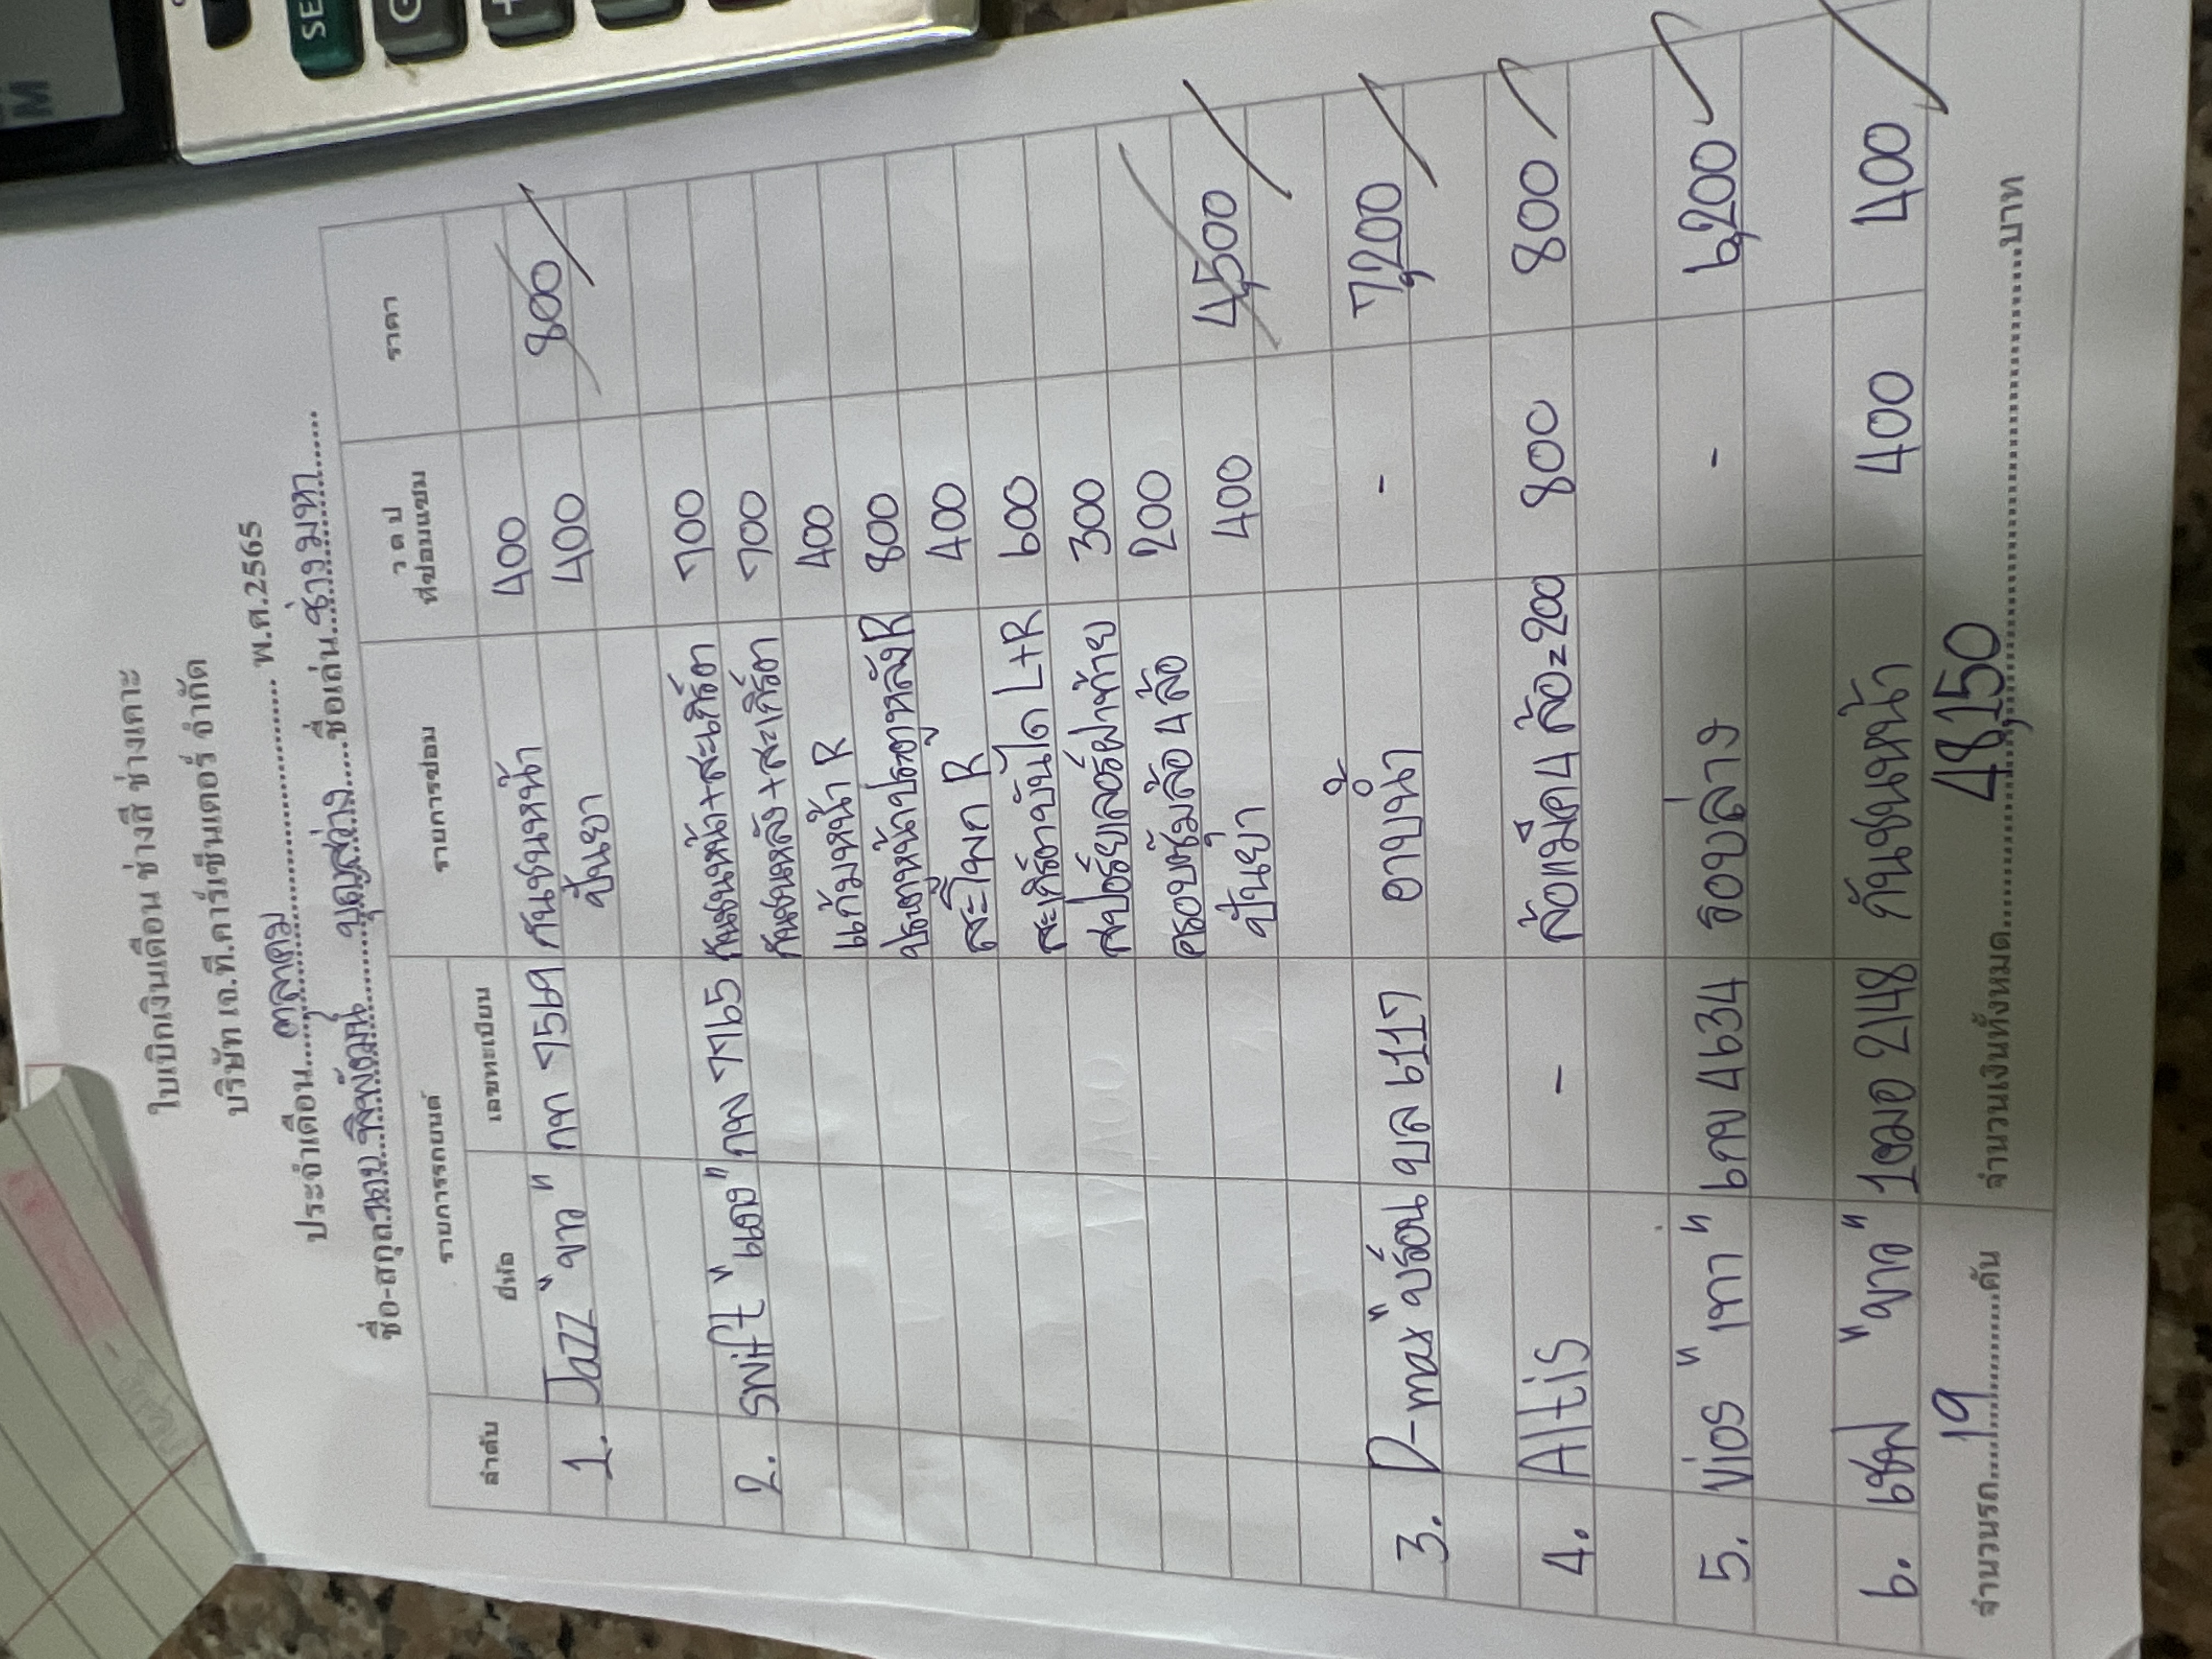 ใบเบิกเงินเดือน ช่างสี ช่างเคาะ
บริษัท เจ.ที.คาร์เซ็นเตอร์ จำกัด
ประจำเดือน....ตุลาคม.... พ.ศ.2565
ชื่อ-สกุล นาย พิพัฒน์ บุญสว่าง ชื่อเล่น ช่างมหา
ลำดับ รายการรถยนต์ รายการซ่อม ว ด ป ที่ซ่อมแซม ราคา
ยี่ห้อ เลขทะเบียน
1. Jazz "ขาว" กท 7569 กันชนหน้า 400
ปั่นยา 400 800
2. swift "แดง" กพ 7765 กันชนหน้า+สะเกิร์ตา 700
กันชนหลัง+สะเกิร์ตา 700
แก้มหน้า R 400
ประตูหน้าประตูหลัง R 800
สะโพก R 400
สะเกิร์ตาบันได L+R 600
สปอร์ยเลอร์ฝาท้าย 300
ครอบซุ้มล้อ 4 ล้อ 200
ปั่นยา 400 4,500
3. D-max "บร์อน บล 6117 อาบน้ำ - 7,200
4. Altis - ล้อแม็ค 4 ล้อ=200 800 800
5. Vios "เทา" 6กข 4634 รอบล่าง - 6,200
6. เชฟ "ขาว" 1ฒอ 2148 กันชนหน้า 400 400
จำนวนรถ....19....คัน จำนวนเงินทั้งหมด....48,150....บาท
SE
M